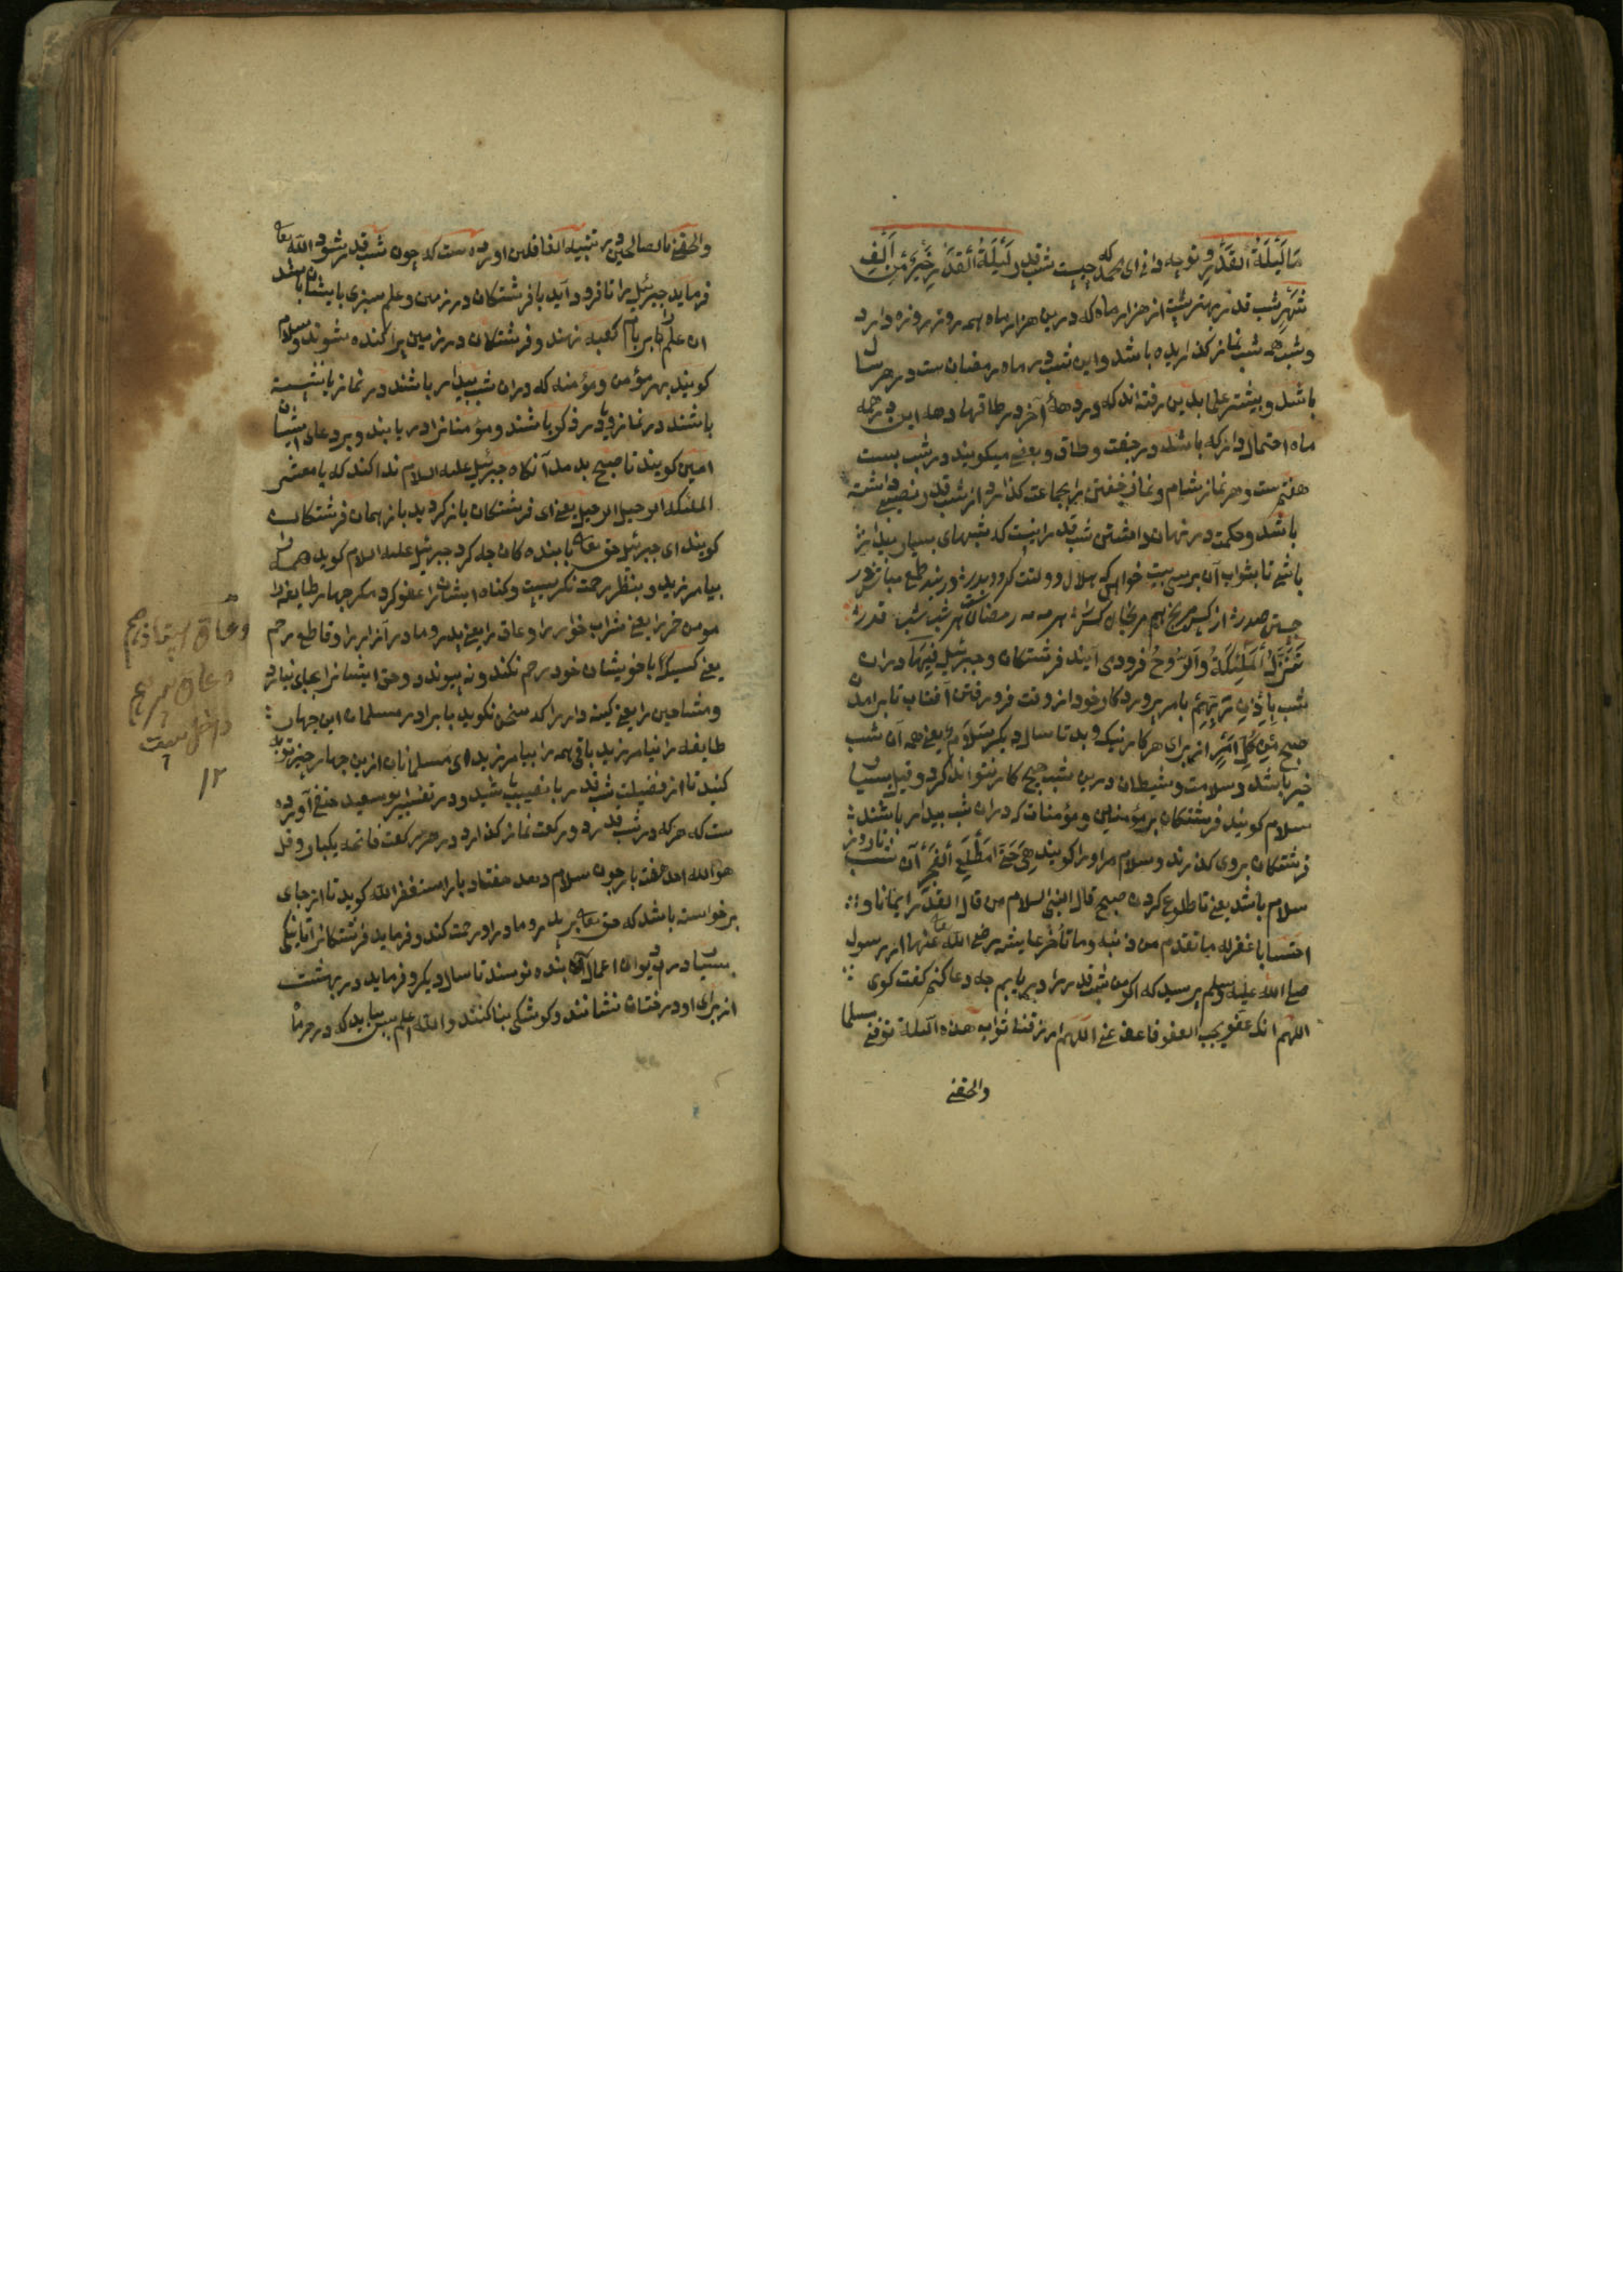 مَا لَيْلَةُ الْقَدْرِ و تو چه دانی ای محمد که چیست شب قدر لَيْلَةُ الْقَدْرِ خَيْرٌ مِّنْ اَلْفِ
شَهْرٍ شب قدر بهترست از هزار ماه که درین هزار ماه همه روز روزه دارد
و شب همه شب نماز کذاریده باشد و این شب در ماه رمضان ست و در هر سال
باشد و بیشتر علما بدین رفته اند که در دههٔ آخر در طاقها و هه این در همه
ماه احتمال دارد که باشد در جفت و طاق و بعضی میکویند در شب بیست
هفتم ست و هر نماز شام و نماز خفتن را بجماعت کذارد از شب قدر نصیبی داشته
باشد و حکمت در نهان داشتن شب قدر اینست که شبهای بسیار بیدار
باشی تا بثواب آن برسی بیت خواهی که
تَنَزَّلُ الْمَلٰٓئِكَةُ وَالرُّوْحُ فرود می آیند فرشتکان و جبرئیل فِيْهَا دران
شب بِاِذْنِ رَبِّهِمْ بامر پروردکار خود از وقت فرو رفتن آفتاب تا برآمدن
صبح مِّنْ كُلِّ اَمْرٍ از برای هر کار نیک و بد تا سال دیکر سَلَامٌ یعنی همه آن شب
خیر باشد و سلامت و شیطان درین شب هیچ کار نتواند کرد و قیل بسیار
سلام کویند فرشتکان بر مؤمنین و مؤمنات که دران شب بیدار باشند
فرشتکان بروی کذرند و سلام مر او را کویند هِيَ حَتّٰى مَطْلَعِ الْفَجْرِ آن شب تا روز
سلام باشد یعنی تا طلوع کردن صبح قال النبی السلام من قال القدر ایمانا و
احتسابا غفر له ما تقدم من ذنبه وما تأخر عایشه رضی الله تعا عنها از رسول
صلی الله علیه وسلم پرسید که اکر من شب قدر را دریابم چه دعا کنم کفت کوی
اللهم انک عفو یحب العفو فاعف عنی اللهم ارزقنا ثواب هذه اللیلة توفنی مسلما
والحقنی
والحقنی بالصالحین در تنبیه الغافلین اورده ست که چون شب قدر شود الله تعا
فرماید جبرئیل را تا فرود آید با فرشتکان در زمین و علم سبزی با ایشان باشد
ان علم را بر بام کعبه نهند و فرشتکان در زمین پراکنده شوند و سلام
کویند بهر مؤمن و مؤمنه که دران شب بیدار باشند در نماز یا نشسته
باشند در نماز و یا در ذکر باشند و مؤمنانرا دریابند و بر دعای ایشان
امین کویند تا صبح بدمد آنکاه جبرئیل علیه السلام ندا کند که یا معشر
الملئکه الرحیل الرحیل یعنی ای فرشتکان باز کردید باز همان فرشتکان
کویند ای جبرئیل حق تعا با بنده کان چه کرد جبرئیل علیه السلام کوید همه را
بیامرزید و بنظر رحمت نکریست و کناه ایشانرا عفو کرد مکر چهار طایفه را
مدمن خمر را یعنی شراب خوار را و عاق را یعنی پدر و مادر آزار را و قاطع رحم
یعنی کسیکه با خویشان خود رحم نکند و نه پیوندد و حق ایشانرا بجای نیارد
و مشاحن را یعنی کینه دار را که سخن نکوید با برادر مسلمان این چهار
طایفه را نیامرزید باقی همه را بیامرزید ای مسلمانان ازین چهار چیز توبه
کنید تا از فضیلت شب قدر با نصیب باشید و در تفسیر بوسعید حنفی آورده
ست که هر که در شب قدر دو رکعت نماز کذارد در هر رکعت فاتحه یکبار و قل
هو الله احد هفت بار چون سلام دهد هفتاد بار استغفر الله کوید تا از جای
برخواسته باشد که حق تعا بر پدر و مادر او رحمت کند و فرماید فرشتکانرا تا نیکی
بسیار در دیوان اعمال آن بنده نویسند تا سال دیکر و فرماید در بهشت
از برای او درختان نشانند و کوشکی بنا کنند والله اعلم پس بباید که در هر ماه
و عاق
و عاق
داخل
۱۲